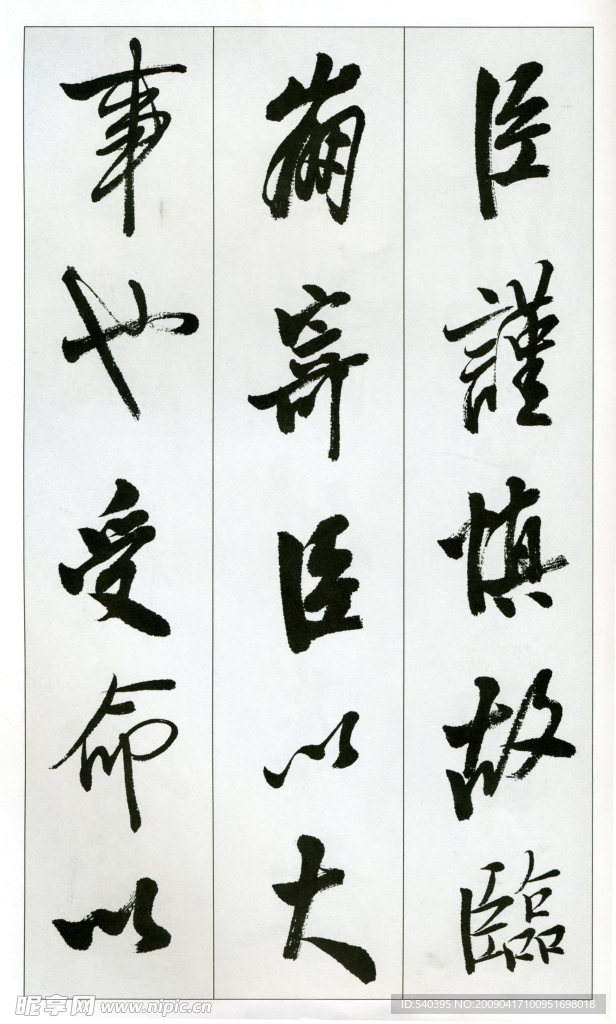 臣謹慎故臨
崩寄臣以大
事也受命以
昵享网 www.nipic.cn
ID:540395 NO:20090417100951698018